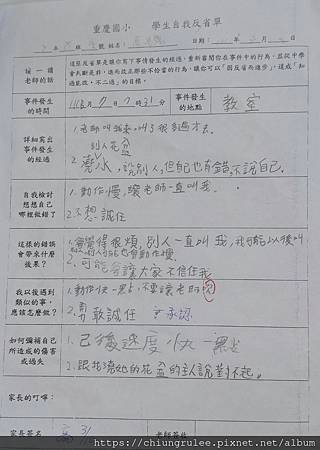 重慶國小 學生自我反省單
姓名 日期
唸一讀
老師的話
這張反省單是讓你寫下事情發生的經過，重新審問你在事件中的行為，並從中學
會判斷是非，進而改正那些不恰當的行為，讓你可以「因反省而進步」，達成「知
過能改，不二過」的目標。
事件發生
的時間
事件發生
的地點
教室
詳細寫出
事件發生
的經過
1.老師叫我來，叫了很多遍才去。
別人花盆
2.澆水，說別人，但自己也有錯不說自己。
自我檢討
想想自己
哪裡做錯了
1.動作慢，讓老師一直叫我。
2.不想誠任
這樣的錯誤
會帶來什麼
後果？
1.會覺得很煩，別人一直叫我，我可能以後叫
別人也會動作慢。
2.可能會讓大家不信任我
我以後遇到
類似的事，
應該怎麼做？
1.動作快一點，不要讓老師
2.勇敢誠任 承認
如何彌補自己
所造成的傷害
或過失
1.已後速度快一點
2.跟花盆的主人說對不起。
家長的叮嚀：
家長簽名 老師簽收
https://chiungrulee.pixnet.net/album